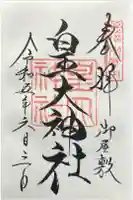 奉拝
御屋敷
皇大神社
令和五年六月三日